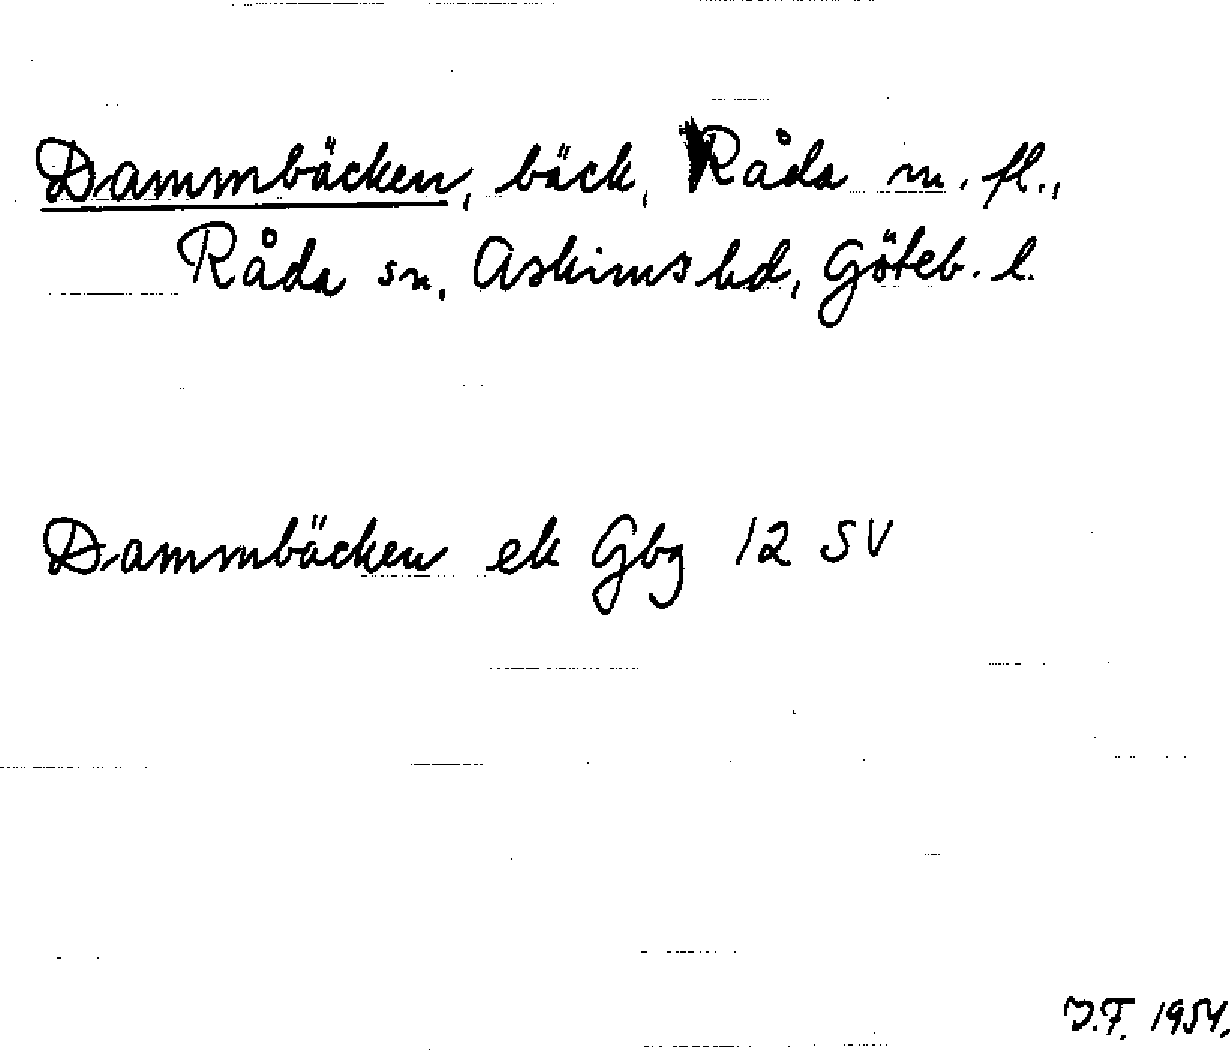 Dammbäcken, bäck, Råda m. fl.,
Råda sn, Askims hd, Göteb. l.
Dammbäcken ek Gbg 12 SV
J.F. 1954.